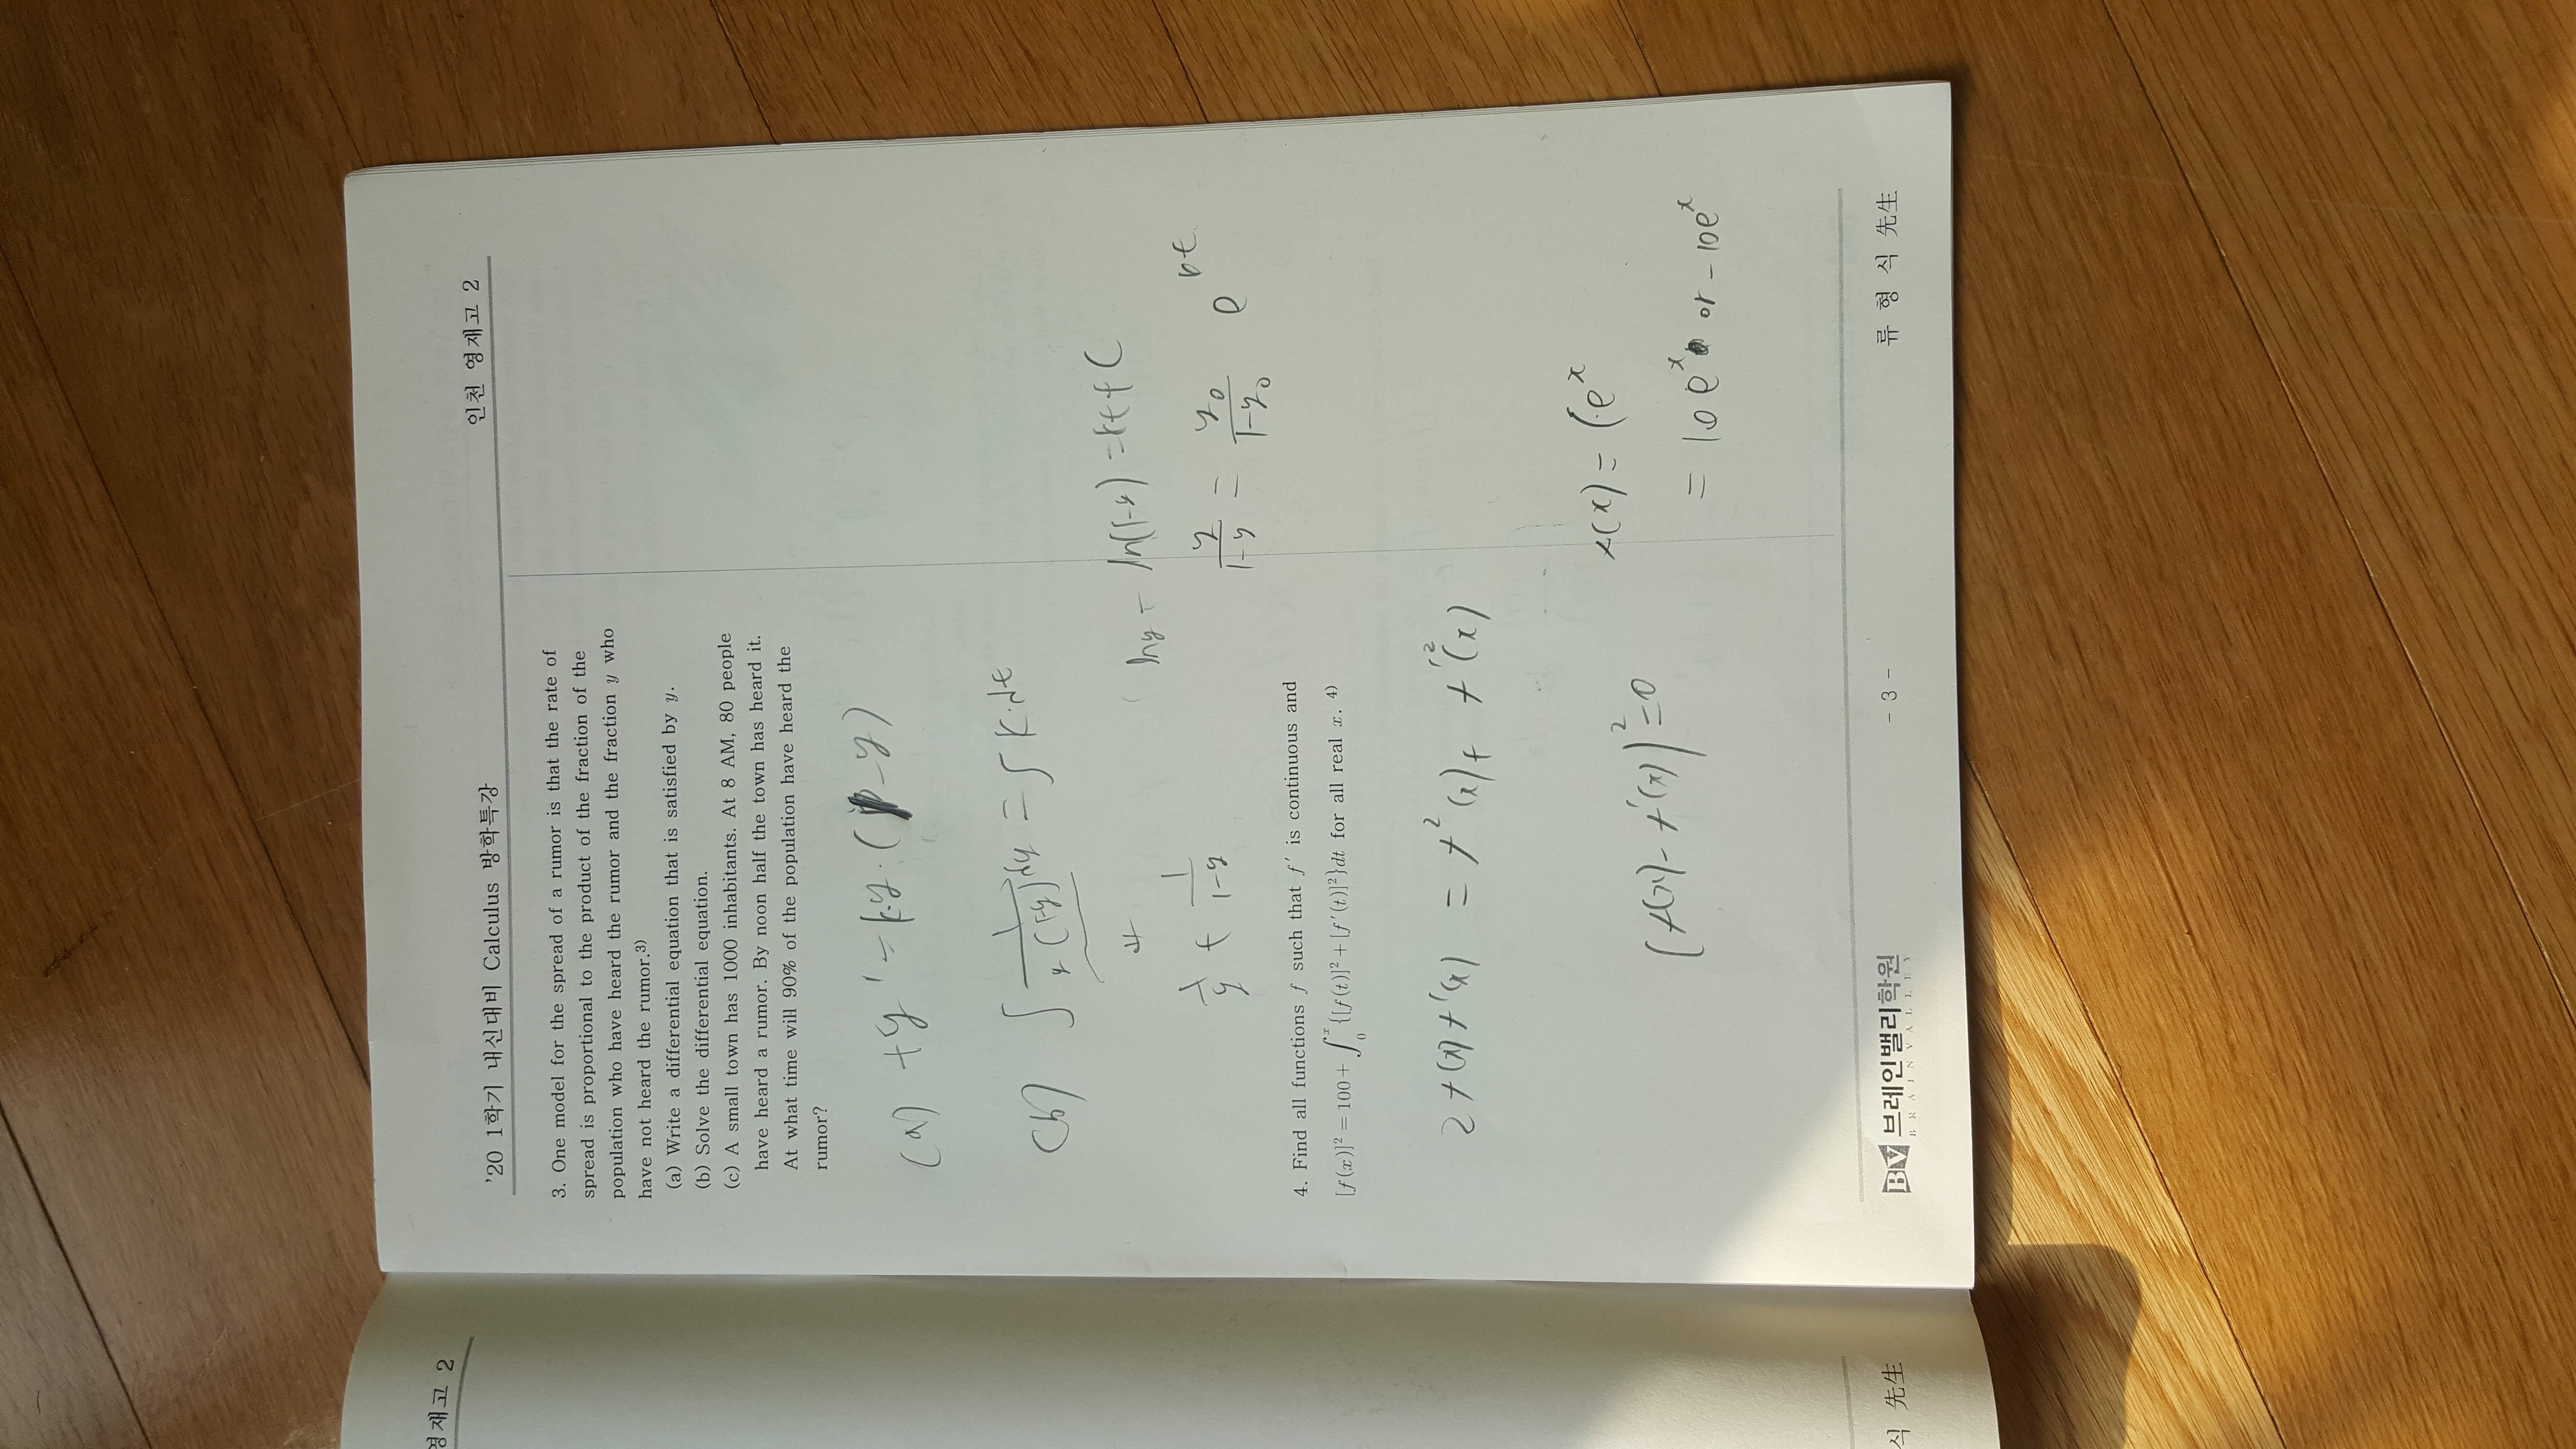 영재고 2
'20 1학기 내신대비 Calculus 방학특강
인천 영재고 2
3. One model for the spread of a rumor is that the rate of
spread is proportional to the product of the fraction of the
population who have heard the rumor and the fraction y who
have not heard the rumor.3)
(a) Write a differential equation that is satisfied by y.
(b) Solve the differential equation.
(c) A small town has 1000 inhabitants. At 8 AM, 80 people
have heard a rumor. By noon half the town has heard it.
At what time will 90% of the population have heard the
rumor?
(a) +y' = k·y·(1-y)
(b) ∫ 1/(y(1-y)) dy = ∫ k·dt
1/y + 1/(1-y)
ln y - ln(1-y) = kt + C
y/(1-y) = y₀/(1-y₀) e^{kt}
4. Find all functions f such that f' is continuous and
[f(x)]² = 100 + ∫₀ˣ {[f(t)]² + [f'(t)]²}dt for all real x. 4)
2f(x)f'(x) = f²(x) + f'²(x)
(f(x) - f'(x))² = 0
f(x) = Ce^x
= 10e^x or -10e^x
식 先生
BV 브레인밸리학원
BRAINVALLEY
- 3 -
류 형 식 先生